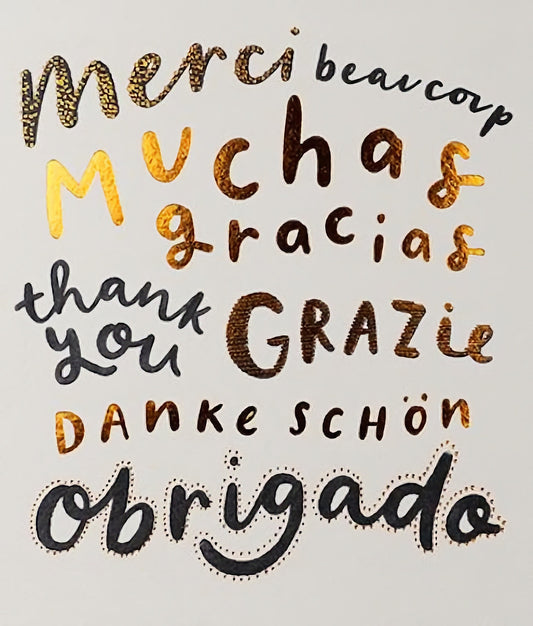 merci beaucoup
Muchas
gracias
thank you
GRAZie
DANKe SCHÖn
obrigado